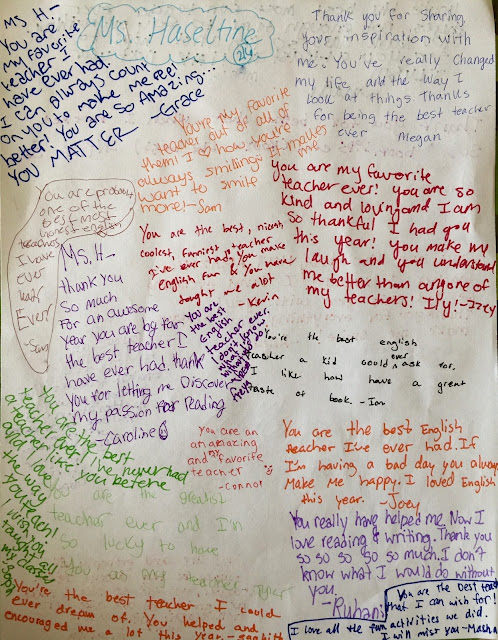 Ms. Haseltine
Ms. H-
You are
my favorite
teacher I
have ever had.
I can always count
on you to make me feel
better! You are so Amazing...
YOU MATTER -Grace
Thank you for Sharing
your inspiration with
me. You've really changed
my life and the way I
look at things Thanks
for being the best teacher
ever Megan
You're my favorite
teacher out of all of
them! I ♡ how you're
always smiling, it makes me
want to smile
more! -Sam
you are my favorite
teacher ever! you are so
kind and loving and I am
so thankful I had you
this year! you make my
laugh and you understand
me better than anyone of
my teachers! Ily! -Izzy
You are probably
one of the
best most
honest english
teachers
I have
ever
had
Ever!
You are the best, nicest,
coolest, funniest teacher
I've ever had. You make
english fun & You have
taught me alot
-Kevin
Ms. H-
thank you
so much
For an awesome
year you are by far
the best teacher I
have ever had. thank
you for letting me Discover
my passion for Reading
-Caroline
You are
the best
English
teacher ever.
I don't know
what I'd do
without you.
You're the best english
teacher a kid could ever ask for.
I like how have a great
taste of book. -Ian
You are the best
teacher ever I've never had
a teacher
and I like you before
I love
the way
you
taught
You are an
an amazing
and my favorite
teacher
-Connor
You are the best English
teacher I've ever had. If
I'm having a bad day you always
Make me happy. I loved English
this year. -Joey
You are the greatest
teacher ever and I'm
so lucky to have
You as my teacher -Tyler
You really have helped me. Now I
love reading & writing. Thank you
so so so so so much. I don't
know what I would do without
you.
-Rubani
You're the best teacher I could
ever dream of. You helped and
encouraged me a lot this year.
You are the best
that I can wish for!
I love all the fun activities we did.
I will miss you